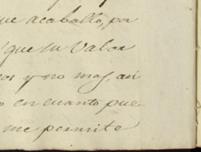 ue acaballo, por
que su Valor
os y no mas, ai
o en cuanto pue
me permite